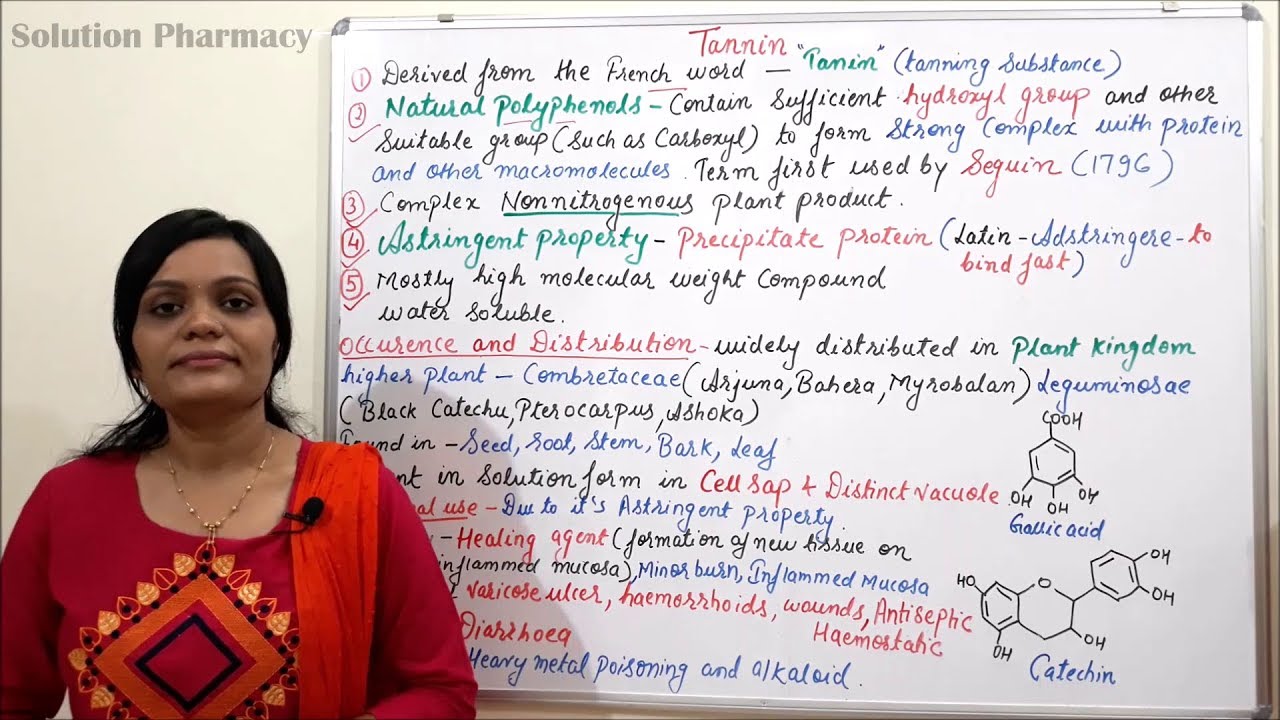 Solution Pharmacy
Tannin
① Derived from the French word — "Tanin" (tanning Substance)
② Natural Polyphenols - Contain Sufficient hydroxyl group and other
Suitable group (Such as Carboxyl) to form Strong Complex with protein
and other macromolecules. Term first used by Seguin (1796)
③ Complex Nonnitrogenous plant product.
④ Astringent property - Precipitate protein (Latin - Adstringere - to
bind fast)
⑤ Mostly high molecular weight Compound
water soluble.
Occurence and Distribution - widely distributed in Plant Kingdom
higher plant — Combretaceae (Arjuna, Bahera, Myrobalan) Leguminosae
(Black Catechu, Pterocarpus, Ashoka)
Found in - Seed, root, Stem, Bark, Leaf
in Solution form in Cell Sap & Distinct vacuole
use - Due to it's Astringent property.
- Healing agent (formation of new tissue on
inflammed mucosa), Minor burn, Inflammed Mucosa
varicose ulcer, haemorrhoids, wounds, Antiseptic
Haemostatic
Diarrhoea
Heavy metal poisoning and alkaloid.
COOH
OH
OH
OH
Gallic acid
HO
O
OH
OH
OH
OH
Catechin